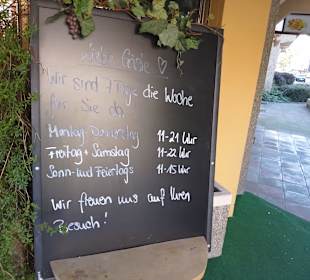 Liebe Gäste ♡
Wir sind 7 Tage die Woche
für Sie da.
Montag-Donnerstag 11-21 Uhr
Freitag + Samstag 11-22 Uhr
Sonn-und Feiertags 11-15 Uhr
Wir freuen uns auf Ihren
Besuch!